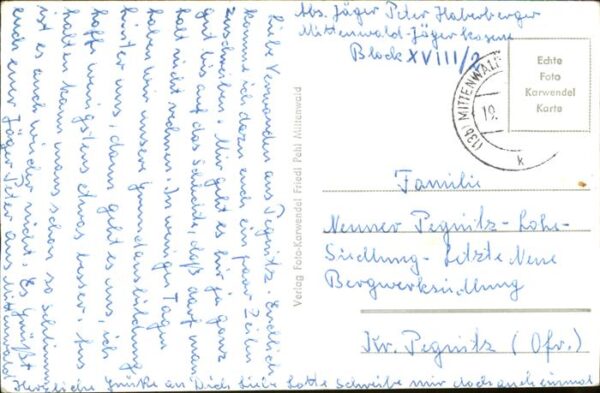 Abs. Jäger Peter Haberberger
Mittenwald-Jägerkaserne
Block XVIII/2
Echte
Foto
Karwendel
Karte
(13b) MITTENWALD
19.
k
Familie
Nenner Pegnitz-Lohe-
Siedlung-Letzte Neue
Bergwerksiedlung
Kr. Pegnitz (Ofr.)
Verlag Foto-Karwendel Friedl Pahl Mittenwald
Liebe Verwandten aus Pegnitz. Endlich
komme ich dazu euch ein paar Zeilen
zuschreiben. Mir geht es hir ja ganz
gut bis auf das Schlechte, daß darf man
halt nicht rechnen. In wenigen Tagen
haben wir unsere Grundausbildung
hinter uns, dann geht es uns, ich
hoff wenigstens etwas besser. Aus
halten kann mans schon so schlimm
ist es auch wieder nicht. Es Grüßt
euch euer Jäger Peter aus Mittenwald
Herzliche Grüße an Dich liebe Lotte schreibe mir doch auch einmal